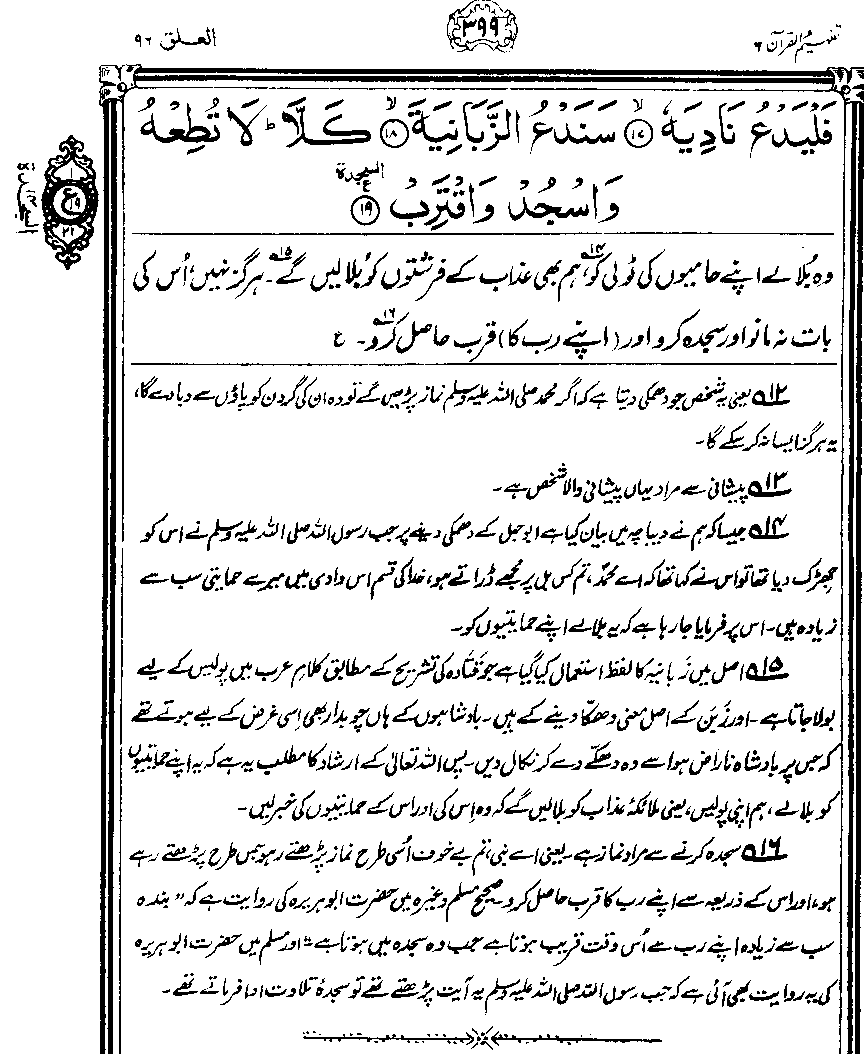 تفہیم القرآن ۶
۳۹۹
العلق ۹۶
فَلْيَدْعُ نَادِيَهٗ ۙ﴿۱۷﴾ سَنَدْعُ الزَّبَانِيَةَ ۙ﴿۱۸﴾ كَلَّا ؕ لَا تُطِعْهُ
وَاسْجُدْ وَاقْتَرِبْ ﴿۱۹﴾ السجدة ع
السجدة ۱۴
۱
ع
۱۹
۲۱
وہ بُلالے اپنے حامیوں کی ٹولی کو۱۴، ہم بھی عذاب کے فرشتوں کو بُلالیں گے۱۵۔ ہرگز نہیں، اُس کی
بات نہ مانو اور سجدہ کرو اور (اپنے رب کا) قرب حاصل کرو۱۶۔ ع
۱۲ یعنی یہ شخص جو دھمکی دیتا ہے کہ اگر محمد صلی اللہ علیہ وسلم نماز پڑھیں گے تو وہ ان کی گردن کو پاؤں سے دبا دے گا،
یہ ہرگز ایسا نہ کر سکے گا۔
۱۳ پیشانی سے مراد یہاں پیشانی والا شخص ہے۔
۱۴ جیسا کہ ہم نے دیباچہ میں بیان کیا ہے ابوجہل کے دھمکی دینے پر جب رسول اللہ صلی اللہ علیہ وسلم نے اس کو
جھڑک دیا تھا تو اس نے کہا تھا کہ اے محمدؐ، تم کس بل پر مجھے ڈراتے ہو، خدا کی قسم اس وادی میں میرے حمایتی سب سے
زیادہ ہیں۔ اس پر فرمایا جا رہا ہے کہ یہ بلالے اپنے حمایتیوں کو۔
۱۵ اصل میں زَبانیہ کا لفظ استعمال کیا گیا ہے جو قَتادہ کی تشریح کے مطابق کلامِ عرب میں پولیس کے لیے
بولا جاتا ہے۔ اور زَبَن کے اصل معنی دھکا دینے کے ہیں۔ بادشاہوں کے ہاں چوبدار بھی اِسی غرض کے لیے ہوتے تھے
کہ جس پر بادشاہ ناراض ہو اسے وہ دھکے دے کر نکال دیں۔ پس اللہ تعالیٰ کے ارشاد کا مطلب یہ ہے کہ یہ اپنے حمایتیوں
کو بلالے، ہم اپنی پولیس، یعنی ملائکۂ عذاب کو بلالیں گے کہ وہ اِس کی اور اس کے حمایتیوں کی خبر لیں۔
۱۶ سجدہ کرنے سے مراد نماز ہے۔ یعنی اے نبی، تم بے خوف اُسی طرح نماز پڑھتے رہو جس طرح پڑھتے رہے
ہو، اور اس کے ذریعہ سے اپنے رب کا قرب حاصل کرو۔ صحیح مسلم وغیرہ میں حضرت ابوہریرہ کی روایت ہے کہ "بندہ
سب سے زیادہ اپنے رب سے اُس وقت قریب ہوتا ہے جب وہ سجدہ میں ہوتا ہے"۔ اور مسلم میں حضرت ابوہریرہ
کی یہ روایت بھی آئی ہے کہ جب رسول اللہ صلی اللہ علیہ وسلم یہ آیت پڑھتے تھے تو سجدۂ تلاوت ادا فرماتے تھے۔